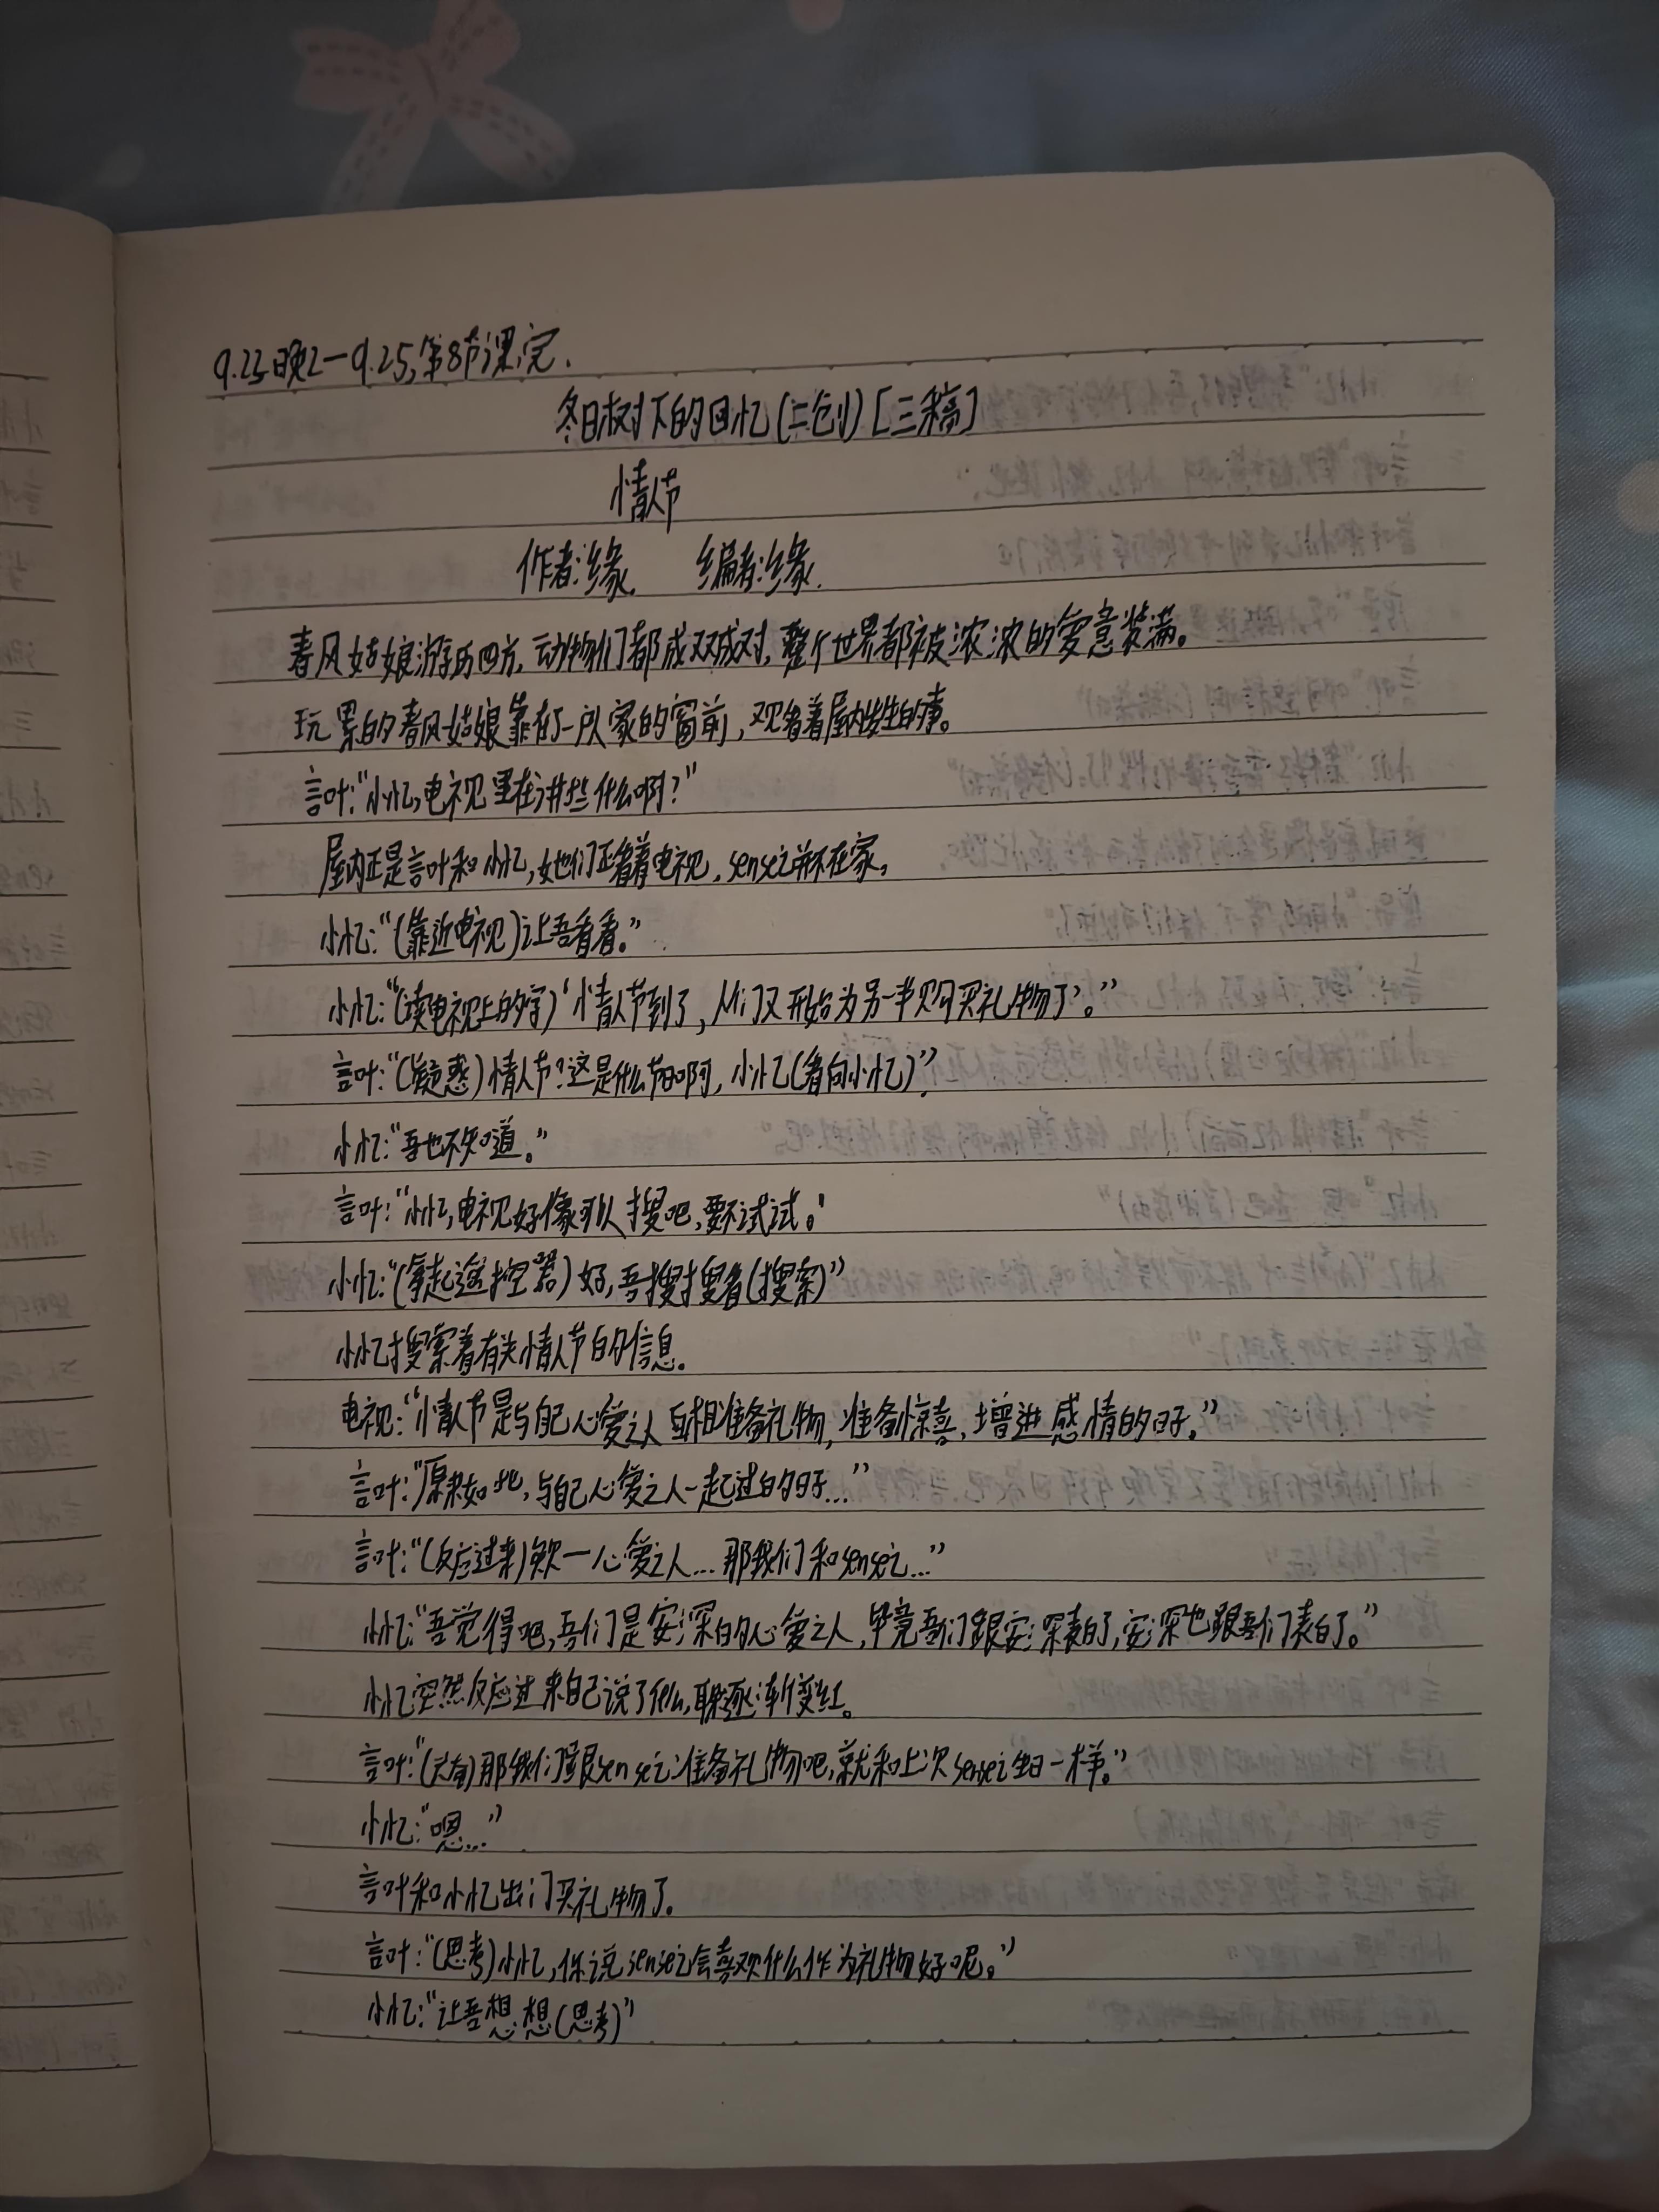 9.23晚2—9.25,第8节课,完.
冬日树下的回忆(二创)[三稿]
情人节
作者:缘. 编者:缘.
春风姑娘游历四方,动物们都成双成对,整个世界都被浓浓的爱意装满。
玩累的春风姑娘靠在了一队家的窗前,观看着屋内发生的事。
言叶:“小忆,电视里在讲些什么啊?”
屋内正是言叶和小忆,她们正看着电视,sensei并不在家,
小忆:“(靠近电视)让吾看看。”
小忆:“(读电视上的字)‘情人节到了,人们又开始为另一半购买礼物了’。”
言叶:“(疑惑)情人节?这是什么节日啊,小忆(看向小忆)”
小忆:“吾也不知道。”
言叶:“小忆,电视好像可以搜吧,要不试试。’
小忆:“(拿起遥控器)好,吾搜搜看(搜索)”
小忆搜索着有关情人节的信息.
电视:“情人节是与自己心爱之人互相准备礼物,准备惊喜,增进感情的日子.”
言叶:“原来如此,与自己心爱之人一起过的日子...”
言叶:“(反应过来)欸—心爱之人...那我们和sensei...”
小忆:“吾觉得吧,吾们是安深的心爱之人,毕竟吾们跟安深表白了,安深也跟吾们表白了。”
小忆突然反应过来自己说了什么,脸逐渐变红。
言叶:“(关看)那我们跟sensei准备礼物吧,就和上次sensei生日一样。”
小忆:“嗯...”
言叶和小忆出门买礼物了.
言叶:“(思考)小忆,你说sensei会喜欢什么作为礼物好呢。”
小忆:“让吾想想(思考)”